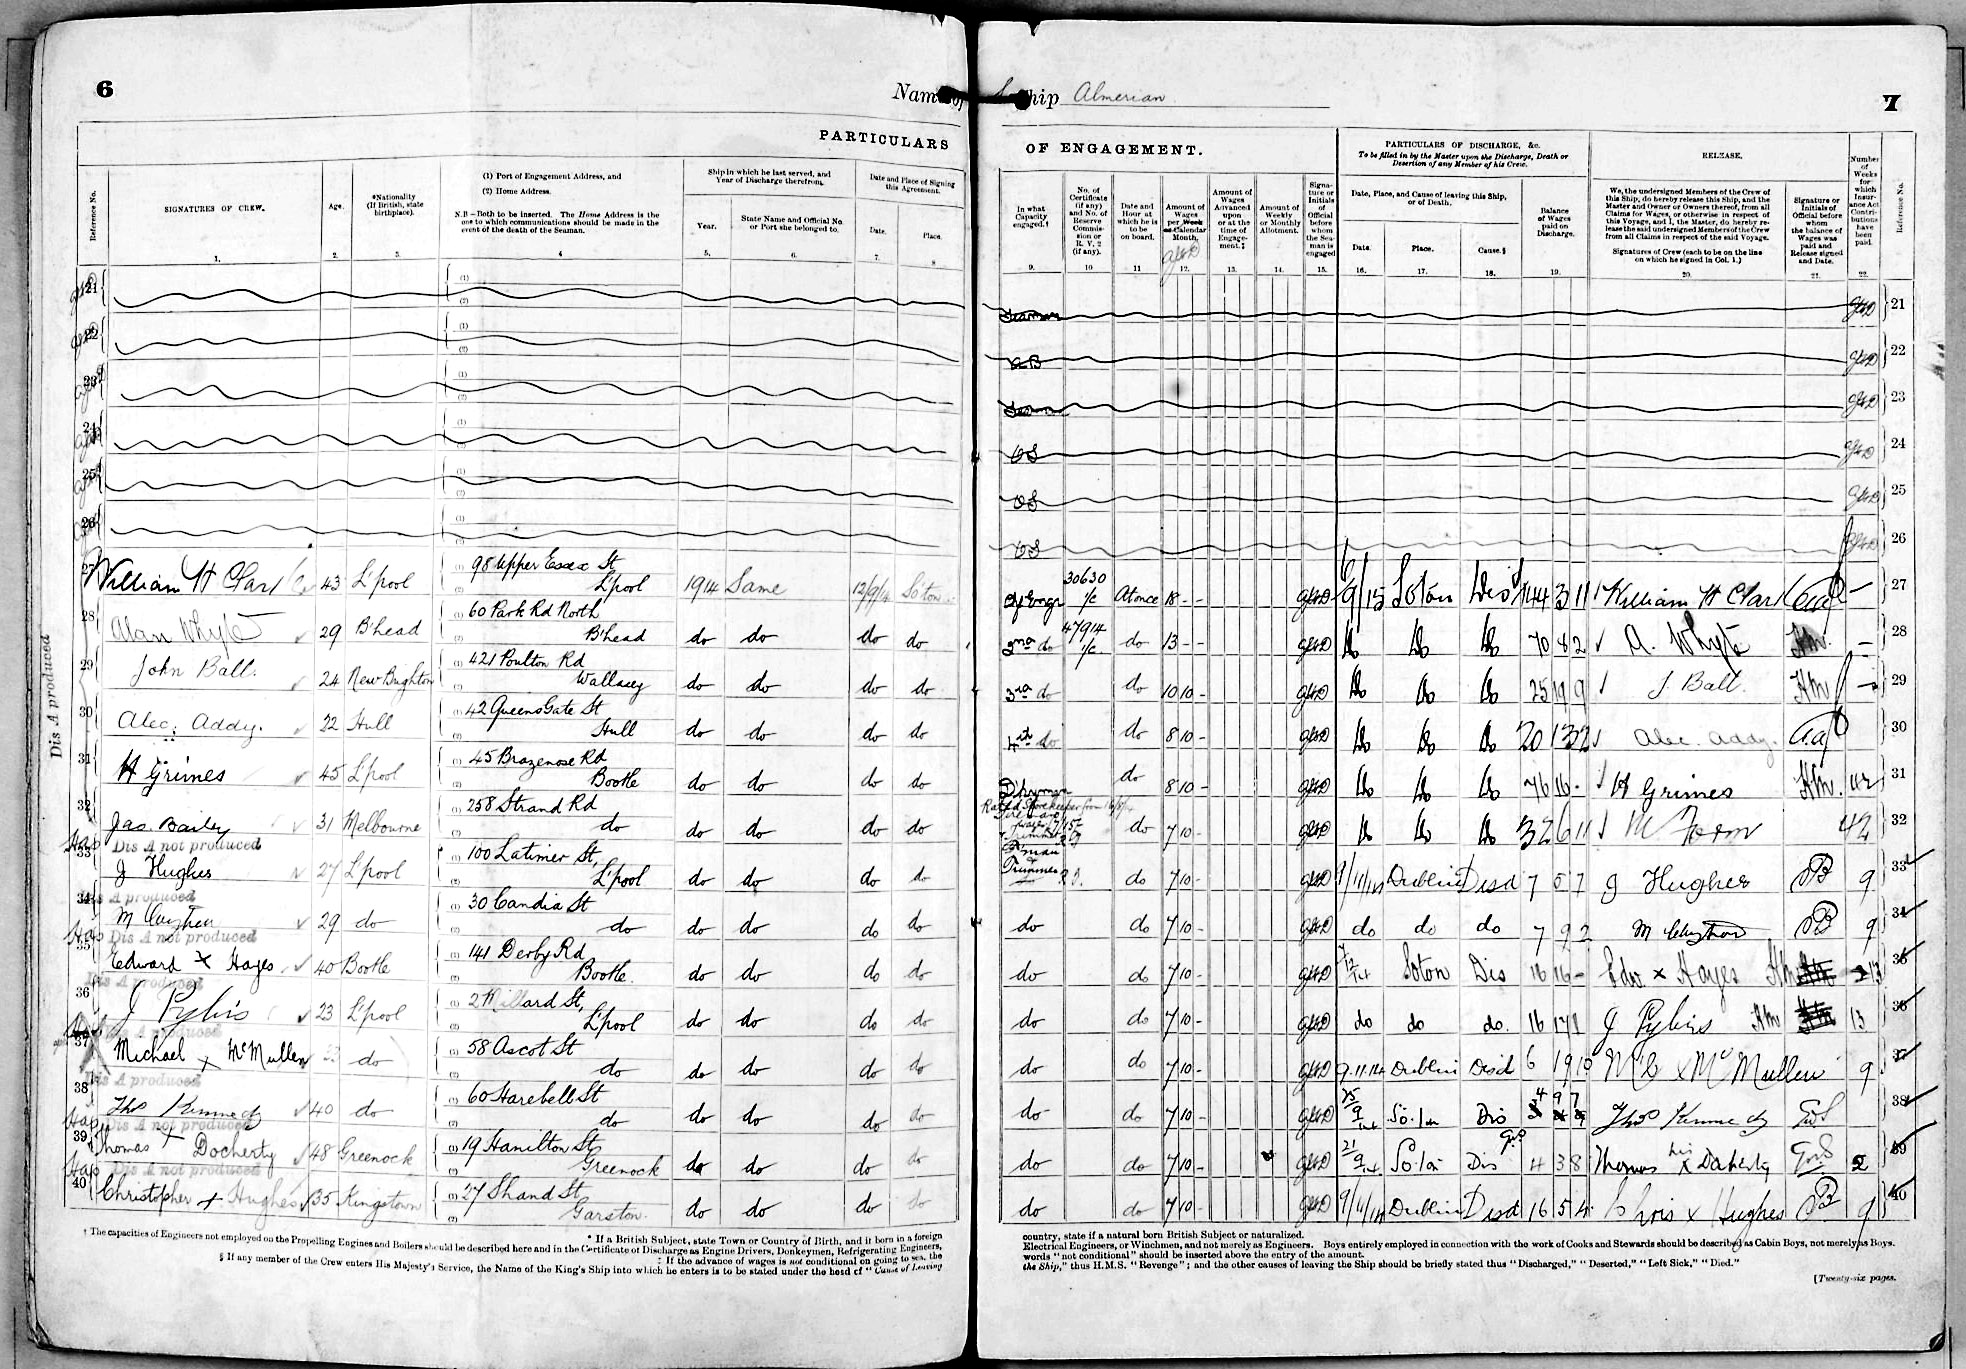 6
Name of
Ship Almerian
7
PARTICULARS
OF ENGAGEMENT.
PARTICULARS OF DISCHARGE, &c.
To be filled in by the Master upon the Discharge, Death or
Desertion of any Member of his Crew.
RELEASE.
Reference No.
SIGNATURES OF CREW.
Age.
*Nationality
(If British, state
birthplace).
(1) Port of Engagement Address, and
(2) Home Address.
N.B.—Both to be inserted. The Home Address is the
one to which communications should be made in the
event of the death of the Seaman.
Ship in which he last served, and
Year of Discharge therefrom.
Year.
State Name and Official No.
or Port she belonged to.
Date and Place of Signing
this Agreement.
Date.
Place.
In what
Capacity
engaged.†
No. of
Certificate
(if any)
and No. of
Reserve
Commis-
sion or
R. V. 2
(if any).
Date and
Hour at
which he is
to be
on board.
Amount of
Wages
per Week
or Calendar
Month.
Amount of
Wages
Advanced
upon
or at the
time of
Engage-
ment.‡
Amount of
Weekly
or Monthly
Allotment.
Signa-
ture or
Initials
of
Official
before
whom
the Sea-
man is
engaged
Date, Place, and Cause of leaving this Ship,
or of Death.
Date.
Place.
Cause.§
Balance
of Wages
paid on
Discharge.
We, the undersigned Members of the Crew of
this Ship, do hereby release this Ship, and the
Master and Owner or Owners thereof, from all
Claims for Wages, or otherwise in respect of
this Voyage, and I, the Master, do hereby re-
lease the said undersigned Members of the Crew
from all Claims in respect of the said Voyage.
Signatures of Crew (each to be on the line
on which he signed in Col. 1.)
Signature or
Initials of
Official before
whom
the balance of
Wages was
paid and
Release signed
and Date.
Number
of
Weeks
for
which
Insur-
ance Act
Contri-
butions
have
been
paid.
Reference No.
1. 2. 3. 4 5. 6. 7. 8
9. 10 11 12. 13. 14. 15. 16. 17. 18. 19. 20. 21. 22.
21 (1) (2) Seaman 21
22 (1) (2) AB 22
23 (1) (2) Seaman 23
24 (1) OS 24
25 (1) (2) OS 25
26 (1) (2) OS 26
27 William H Clark 43 L'pool (1) 98 Upper Essex St L'pool 1914 Same 12/9/14 So'ton
30630 At once 18 - - 6/9/15 Soton Dis 144 3 11 William H Clark 27
28 Alan Whyte 29 B'head (1) 60 Park Rd North (2) B'head do do do do
2nd do 47914 do 13 - - Do Do Do 70 8 2 A. Whyte HM. - 28
29 John Ball. 24 New Brighton (1) 421 Poulton Rd (2) Wallasey do do do do
3rd do do 10 10 - Do Do Do 25 19 9 J. Ball. HM 29
30 Alec. Addy. 22 Hull (1) 42 Queens Gate St (2) Hull do do do do
4th do do 8 10 - Do Do Do 20 13 2 Alec. Addy. 30
31 H Grimes 45 L'pool (1) 45 Brazenose Rd (2) Bootle do do do do
D'kyman do 8 10 - Do Do Do 76 16 - H Grimes HM. 42 31
32 Jas. Bailey 31 Melbourne (1) 258 Strand Rd (2) do do do do do
do 7 10 - Do Do Do 32 6 11 42 32
Dis A not produced
33 J Hughes 27 L'pool (1) 100 Latimer St, (2) L'pool do do do do
F'man & Trimmer do 7 10 - 9/11/14 Dublin Disd 7 0 7 J Hughes 9 33
Dis A produced
34 29 do (1) 30 Candia St (2) do do do do do
do do 7 10 - do do do 7 9 2 9 34
Dis A not produced
35 Edward x Hayes 40 Bootle (1) 141 Derby Rd (2) Bootle. do do do do
do do 7 10 - 7/12/14 Soton Dis 16 16 - Edw. x Hayes HM 13 35
Dis A produced
36 J Pybis 23 L'pool (1) 2 Millard St, (2) L'pool do do do do
do do 7 10 - do do do. 16 17 1 J Pybis HM 13 36
Dis A not produced
37 Michael x McMullen 33 do (1) 58 Ascot St (2) do do do do do
do do 7 10 - 9.11.14 Dublin Disd 6 19 10 Ml x McMullen 9 37
Dis A produced
38 Thos Kennedy 40 do (1) 60 Harebell St (2) do do do do do
do do 7 10 - 25/9/14 So'ton Dis 4 9 7 Thos Kennedy 38
Dis A not produced
39 Thomas x Docherty 48 Greenock (1) 19 Hamilton St, (2) Greenock do do do do
do do 7 10 - 21/9/14 So'ton Dis 4 3 8 Thomas his x Docherty 2 39
Dis A not produced
40 Christopher + Hughes 35 Kingstown (1) 27 Shand St, (2) Garston. do do do do
do do 7 10 - 9/11/14 Dublin Disd 16 5 4 Chris x Hughes 9 40
Dis A produced
† The capacities of Engineers not employed on the Propelling Engines and Boilers should be described here and in the Certificate of Discharge as Engine Drivers, Donkeymen, Refrigerating Engineers,
* If a British Subject, state Town or Country of Birth, and if born in a foreign
‡ If the advance of wages is not conditional on going to sea, the
§ If any member of the Crew enters His Majesty's Service, the Name of the King's Ship into which he enters is to be stated under the head of "Cause of Leaving
country, state if a natural born British Subject or naturalized.
Electrical Engineers, or Winchmen, and not merely as Engineers. Boys entirely employed in connection with the work of Cooks and Stewards should be described as Cabin Boys, not merely as Boys.
words "not conditional" should be inserted above the entry of the amount.
the Ship," thus H.M.S. "Revenge"; and the other causes of leaving the Ship should be briefly stated thus "Discharged," "Deserted," "Left Sick," "Died."
[Twenty-six pages.